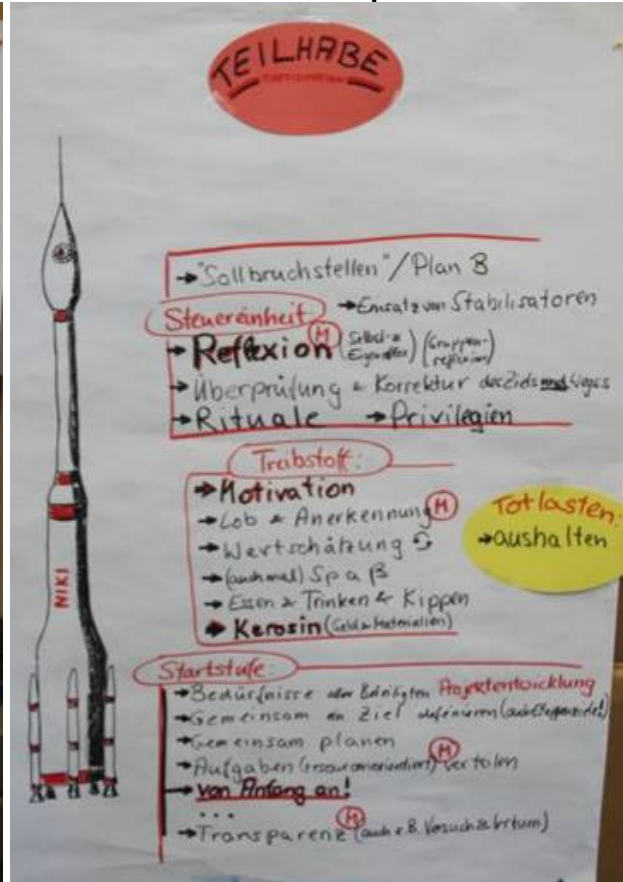 TEILHABE
→ "Sollbruchstellen" / Plan B
Steuereinheit → Einsatz von Stabilisatoren
→ Reflexion (M) (Selbst- & ) (Gruppenreflexion)
→ Überprüfung & Korrektur des Ziels und Weges
→ Rituale → Privilegien
Treibstoff:
→ Motivation
→ Lob & Anerkennung (M)
→ Wertschätzung
→ (auch mal) Spaß
→ Essen & Trinken & Kippen
→ Kerosin (Geld & Materialien)
Totlasten:
→ aushalten
NIKI
Startstufe:
→ Bedürfnisse aller Beteiligten Projektentwicklung
→ Gemeinsam ein Ziel definieren (auch Etappenziele!)
→ Gemeinsam planen
→ Aufgaben (ressourcenorientiert) verteilen (M)
→ von Anfang an!
...
→ Transparenz (M) (auch z.B. Versuch & Irrtum)